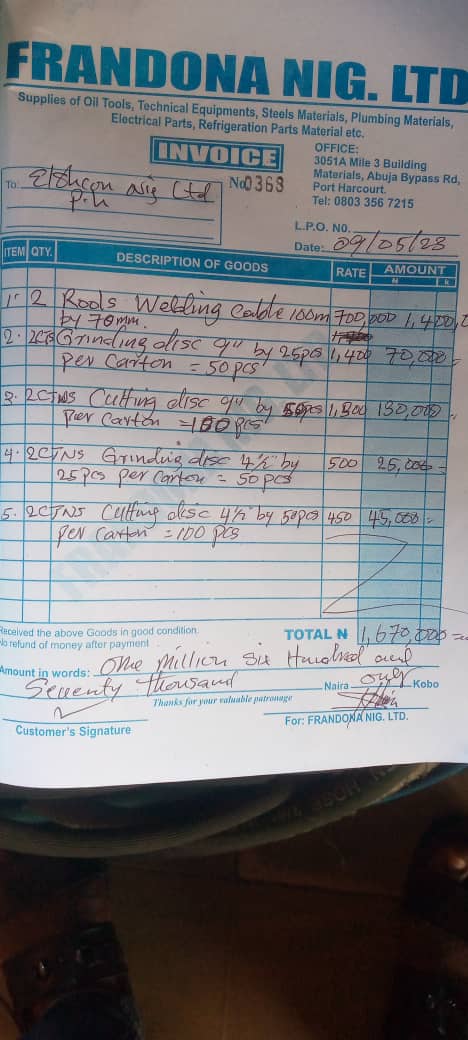 FRANDONA NIG. LTD
Supplies of Oil Tools, Technical Equipments, Steels Materials, Plumbing Materials,
Electrical Parts, Refrigeration Parts Material etc.
INVOICE
No 0363
OFFICE:
3051A Mile 3 Building
Materials, Abuja Bypass Rd,
Port Harcourt.
Tel: 0803 356 7215
To: Nig Ltd
P.H
L.P.O. NO.
Date: 09/05/23
ITEM QTY. DESCRIPTION OF GOODS RATE AMOUNT
N k
1. 2 Rools Welding Cable 100m 700,000 1,400,0
by 70mm.
2. Grinding disc 9" by 25pcs 1,400 70,000
per Carton = 50pcs
3. 2CTNS Cutting disc 9" by 50pcs 1,300 130,000
per Carton = 100pcs
4. 2CTNS Grinding disc 4½" by 500 25,000
25pcs per Carton = 50pcs
5. 2CTNS Cutting disc 4½" by 50pcs 450 45,000
per Carton = 100 pcs
Received the above Goods in good condition.
No refund of money after payment
TOTAL N 1,670,000
Amount in words: One million Six Hundred and
Seventy thousand Naira only Kobo
Thanks for your valuable patronage
Customer's Signature
For: FRANDONA NIG. LTD.